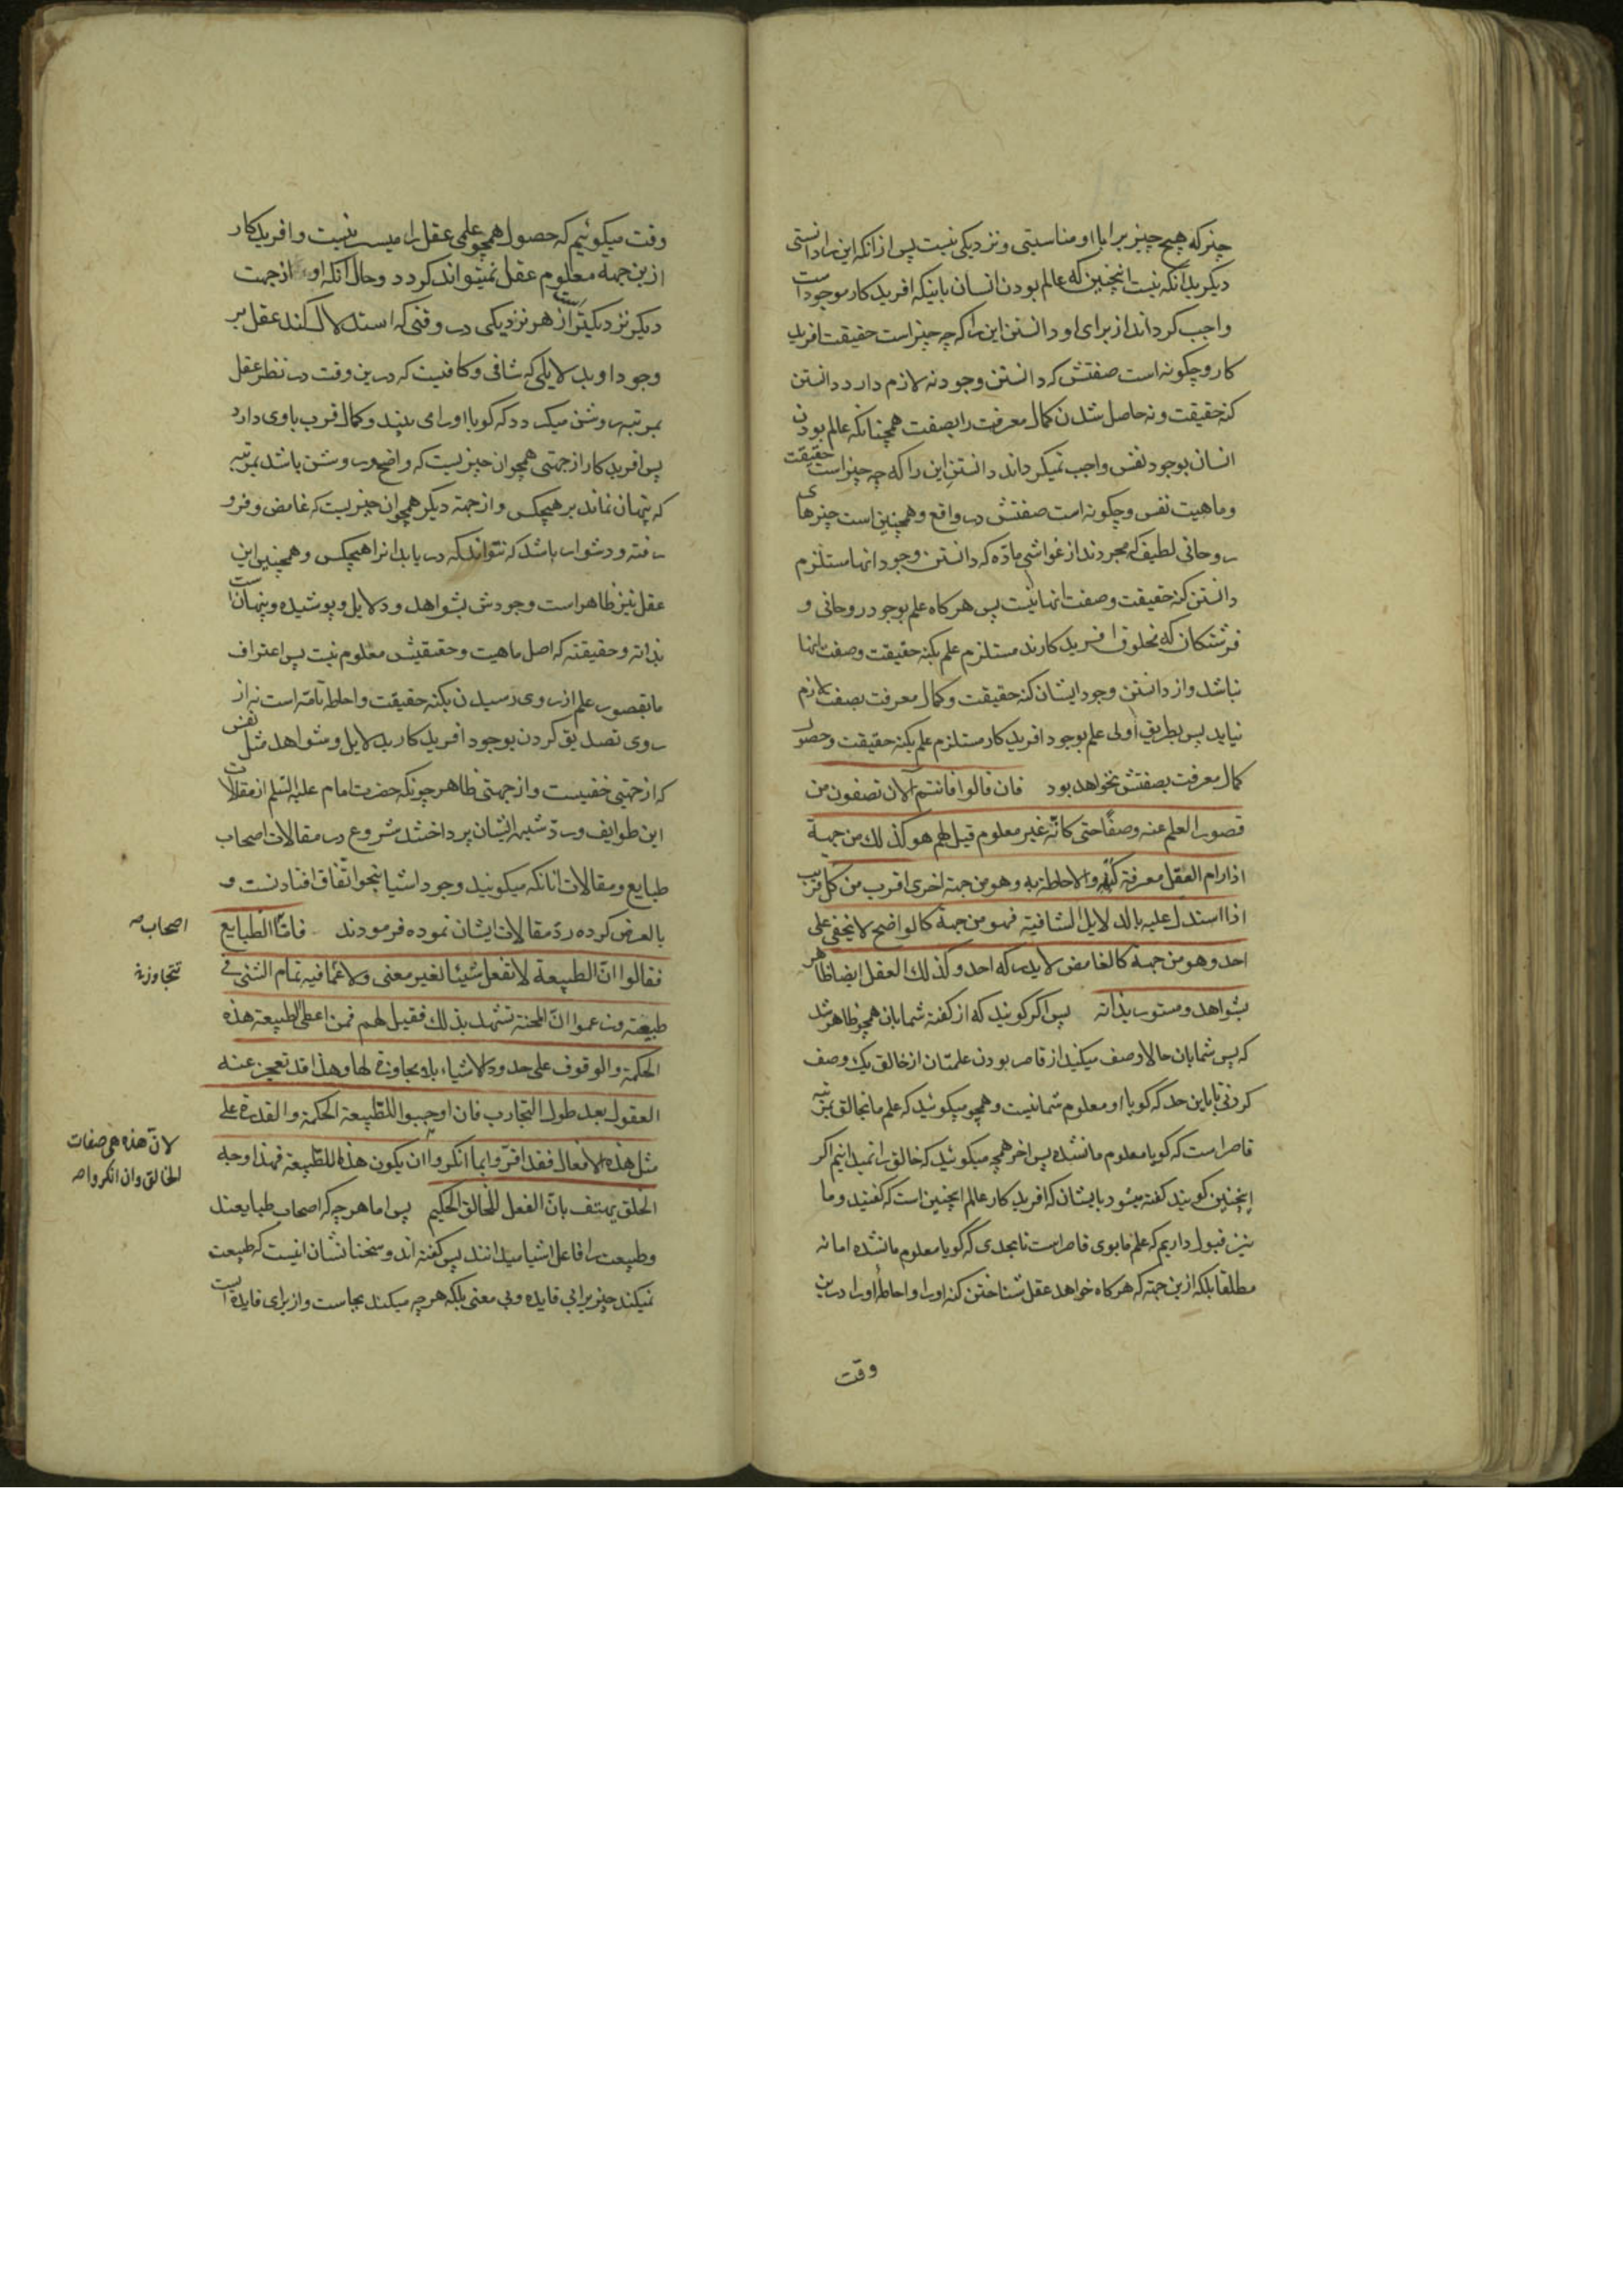 چیز که هیچ چیز برابا او مناسبتی و نزدیکی نیست پس از انکه این را دانستی
دیگر بدانکه نیست انچنین که عالم بودن انسان باینکه افریدکار موجود است
واجب کرداند از برای او دانستن این را که چه چیز است حقیقت افرید
کار و چکونه است صفتش که دانستن وجود نه لازم دارد دانستن
کنه حقیقت و نه حاصل شدن کمال معرفت را بصفت همچنانکه عالم بودن
انسان بوجود نفس واجب نمیکرداند دانستن این را که چه چیز است حقیقت
و ماهیت نفس و چکونه است صفتش در واقع و همچنین است چیزهای
روحانی لطیف که مجردند از غواشی مادّه که دانستن وجود انها مستلزم
دانستن کنه حقیقت و صفت انها نیست پس هرکاه علم بوجود روحانی و
فرشتکان که مخلوق افریدکارند مستلزم علم بکنه حقیقت و صفت انها
نباشد و از دانستن وجود ایشان کنه حقیقت و کمال معرفت بصفت لازم
نیاید پس بطریق اولی علم بوجود افریدکار مستلزم علم بکنه حقیقت و حصول
کمال معرفت بصفتش نخواهد بود فان قالوا فانتم الان تصفون من
قصور العلم عنه وصفًا حتی کانّه غیر معلوم قیل لهم هو کذلك من جهة
اذا رام العقل معرفة کنهه والاحاطة به و هو من جهة اخری اقرب من کل قریب
اذا استدل علیه بالدلایل الشافیة فهو من جهة کالواضح لا یخفی علی
احد و هو من جهة کالغامض لا یدرکه احد و کذلك العقل ایضا ظاهر
بشواهد و مستور بذاته پس اکر کویند که از کفته شمایان همچو ظاهر شد
که پس شمایان حالا وصف میکنید از قاصر بودن علمتان از خالق یک وصف
کردنی تا باین حد که کویا او معلوم شما نیست و همچو میکوئید که علم ما بخالق بمرتبه
قاصر است که کویا معلوم ما نشده پس اخر همچه میکوئید که خالق را نمیدانیم اکر
اینچنین کویند کفته میشود بایشان که افریدکار عالم اینچنین است که کفتید و ما
نیز قبول داریم که علم ما بوی قاصر است تا بحدی که کویا معلوم ما نشده اما نه
مطلقا بلکه ازین جهته که هرکاه خواهد عقل شناختن کنه او را و احاطه او را درین
وقت
وقت میکوئیم که حصول همچو علمی عقل را میسر نیست و افریدکار
ازین جهه معلوم عقل نمیتواند کردد و حال انکه او از جهت
دیکر نزدیکتر است از هر نزدیکی در وقتی که استدلال کند عقل بر
وجود او بدلایلی که شافی و کافیست که درین وقت در نظر عقل
بمرتبه روشن میکردد که کویا او را می بیند و کمال قرب باوی دارد
پس افریدکار از جهتی همچو ان چیزیست که واضح و روشن باشد بمرتبه
که پنهان نماند بر هیچکس و از جهة دیکر همچو ان چیزیست که غامض و فرو
رفته و دشوار باشد که نتواند که دریابد انرا هیچکس و همچنین این
عقل نیز ظاهر است وجودش بشواهد و دلایل و پوشیده و پنهان است
بذاته و حقیقته که اصل ماهیت و حقیقتش معلوم نیست پس اعتراف
ما بقصور علم از روی رسیدن بکنه حقیقت و احاطه تامّه است نه از
روی تصدیق کردن بوجود افریدکار بدلایل و شواهد مثل نفس
که از جهتی خفیست و از جهتی ظاهر چونکه حضرت امام علیه السّلم از مقالات
این طوایف و ردّ شبهه ایشان پرداختند شروع در مقالات اصحاب
طبایع و مقالات انانکه میکویند وجود اشیا بنحو اتّفاق افتادنست و
بالعرض کرده ردّ مقالات ایشان نموده فرمودند فامّا الطبایع
اصحاب صه
فقالوا انّ الطبیعة لا تفعل شیئا لغیر معنی ولا عمّا فیه تمام الشئی فی
تتجاوزه
طبیعته و زعموا انّ المحنة تشهد بذلك فقیل لهم فمن اعطی الطبیعة هذه
الحکمة والوقوف علی حدود الاشیاء بلا مجاوزة لها و هذا قد تعجز عنه
العقول بعد طول التجارب فان اوجبوا للطّبیعة الحکمة والقدرة علی
مثل هذه الافعال فقد اقرّوا بما انکروا ان یکون هذا للطّبیعة فهذا وجه
لانّ هذه هی صفات
الخالق وان انکروا صه
الخلق یهتف بانّ الفعل للخالق الحکیم پس اما هرچه که اصحاب طبایعند
و طبیعت را فاعل اشیا میدانند پس کفته اند و سخنانشان اینست که طبیعت
نمیکند چیز برا بی فایده و بی معنی بلکه هرچه میکند بجاست و از برای فایده ایست